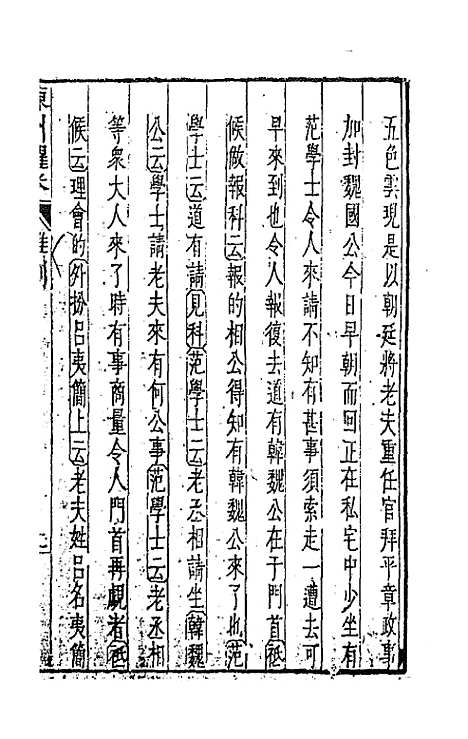 五色雲現是以朝廷將老夫重任官拜平章政事
加封魏國公今日早朝而回正在私宅中少坐有
范學士令人來請不知有甚事須索走一遭去可
早來到也令人報復去道有韓魏公在于門首祗
候做報科云報的相公得知有韓魏公來了也范
學士云道有請見科范學士云老丞相請坐韓魏
公云學士請老夫來有何公事范學士云老丞相
等衆大人來了時有事商量令人門首再覷者祗
候云理會的外扮呂夷簡上云老夫姓呂名夷簡